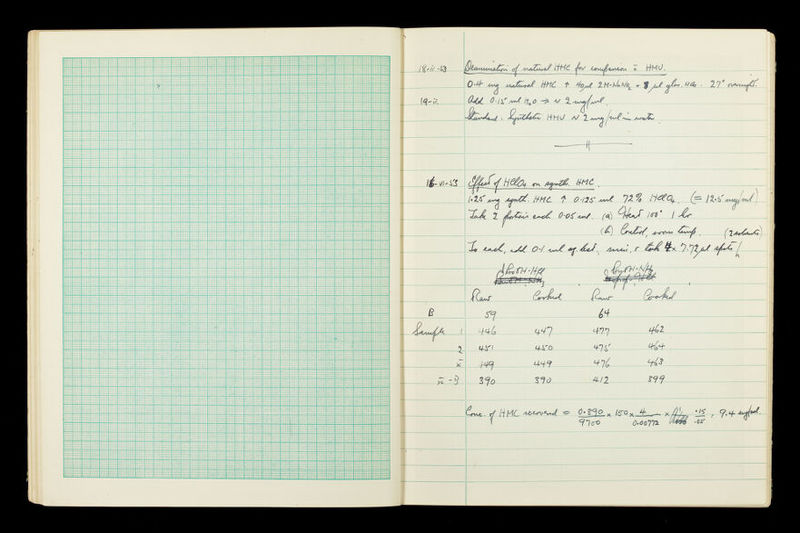 18-ii-53 Deamination of natural HMC for comparison c̄ HMU.
0.4 mg natural HMC ↑ 40 µl 2M-NaNO₂ + 8 µl glac. HAc. 27° overnight.
19-ii. Add 0.15 ml H₂O → ~ 2 mg/ml.
Standard: Synthetic HMU ~ 2 mg/ml in water.
16-vi-53 Effect of HClO₄ on synth. HMC.
1.25 mg synth. HMC ↑ 0.125 ml 72% HClO₄ (= 12.5 mg/ml)
Take 2 portions each 0.05 ml. (a) Heat 100° 1 hr
(b) Control, room temp.
To each, add 0.1 ml of dist, mix, + took 4 x 7.72 µl spots
Raw Cooked Raw Cooked
B 59 64
Sample 1 446 447 477 462
2 451 450 475 464
x̄ 449 449 476 463
x̄ - B 390 390 412 399
Conc. of HMC recovered = 0.390 / 9700 x 150 x 4 / 0.00772 x .15 / .05 = 9.4 mg/ml.